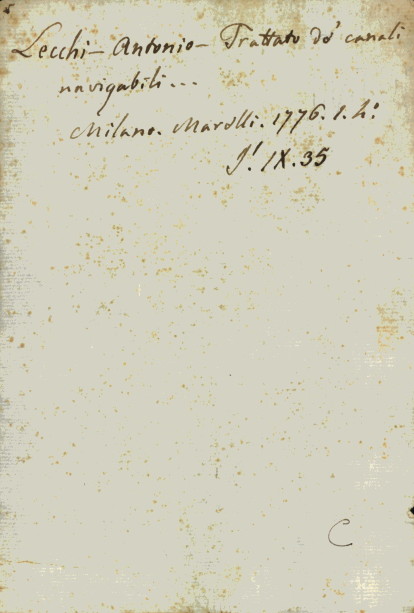 Lecchi - Antonio - Trattato de' canali
navigabili...
Milano. Marelli. 1776. 1. 4.º
IX. 35
C